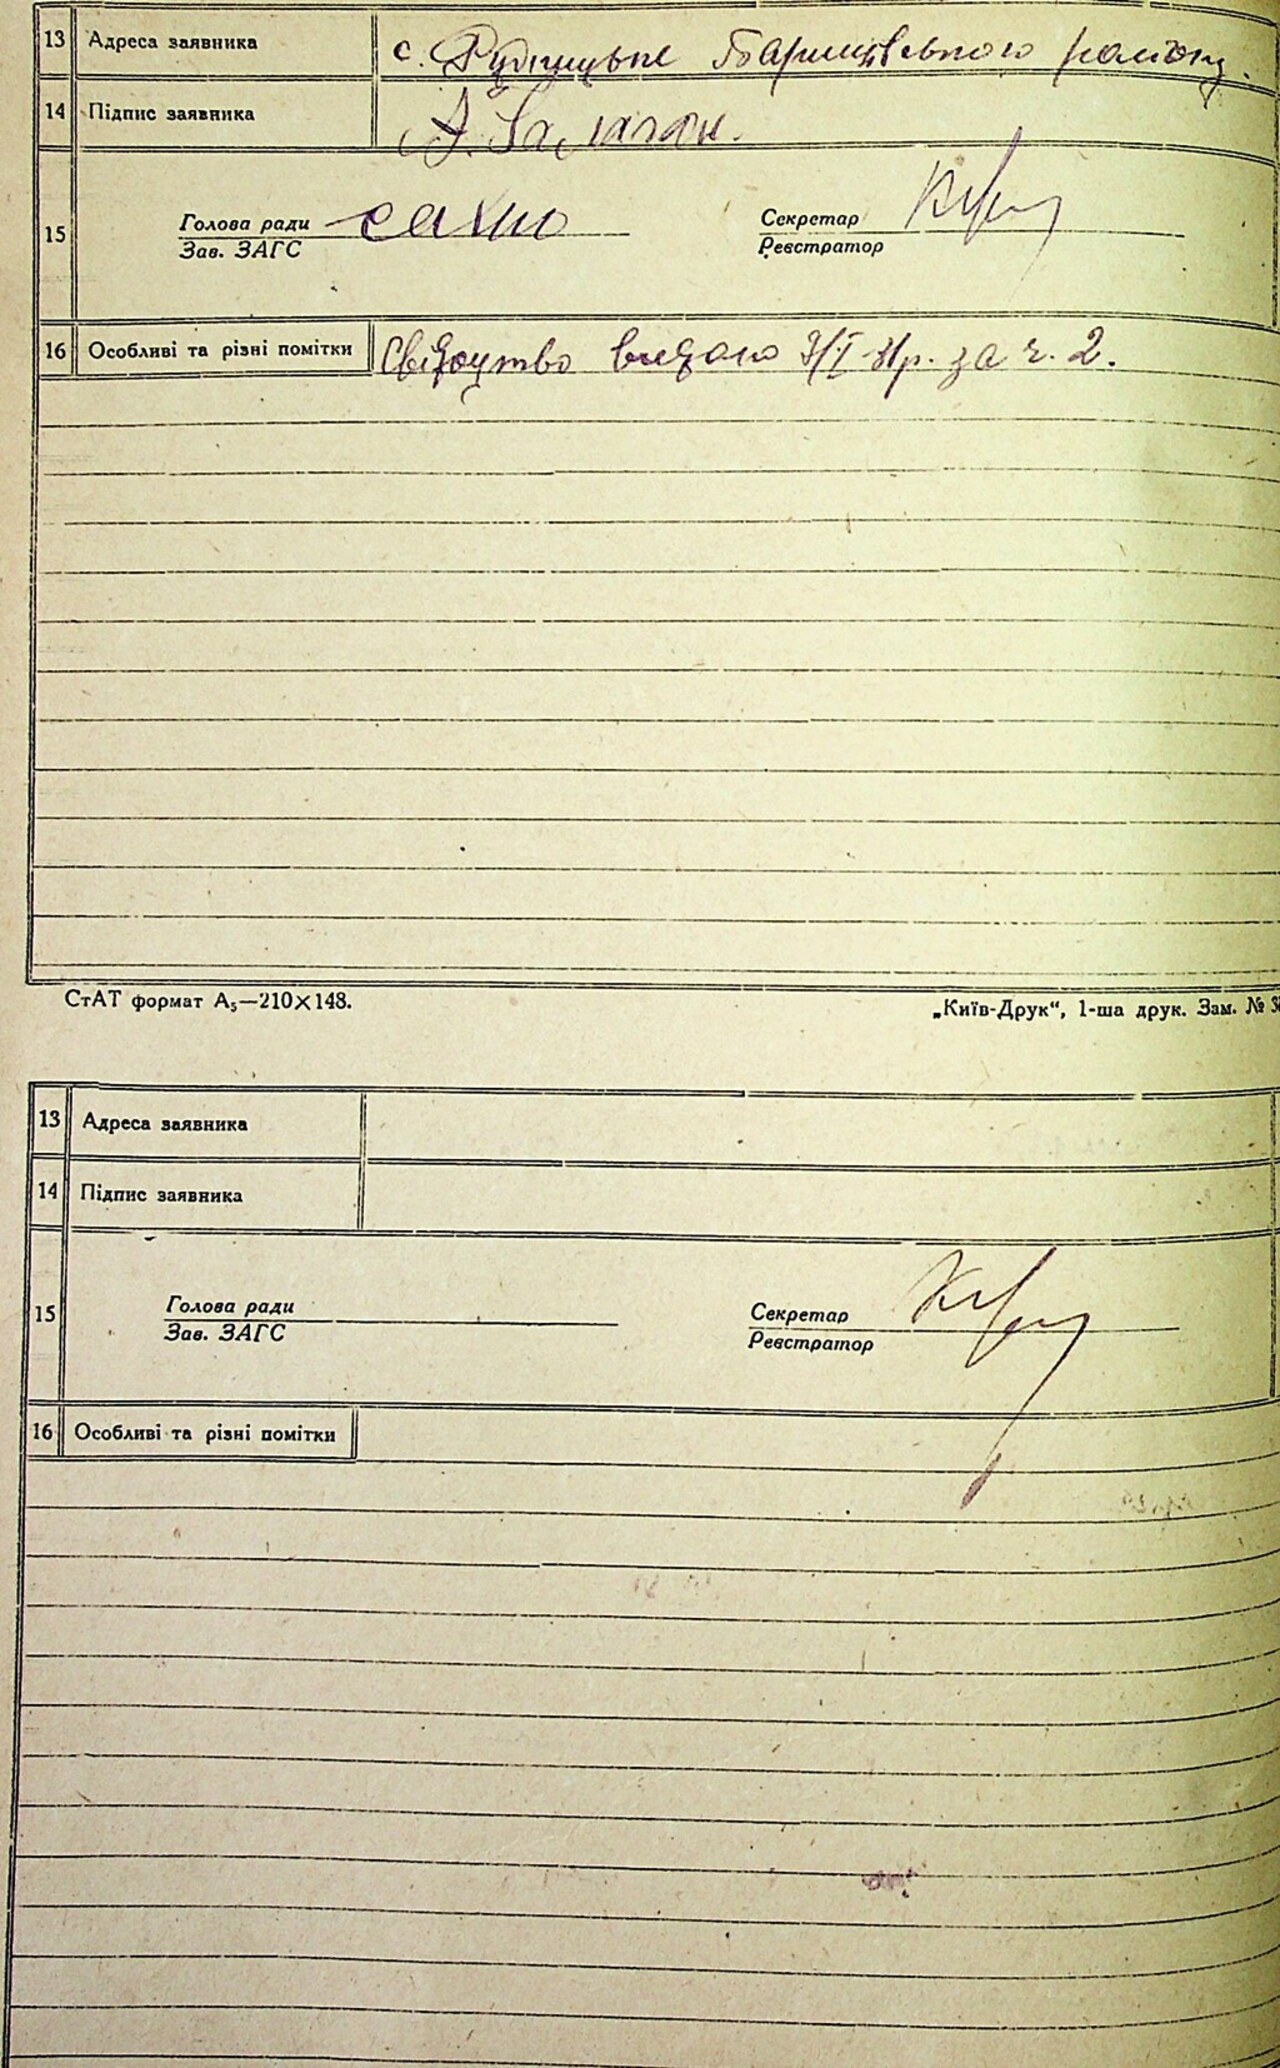 13 Адреса заявника с. Рудницьке Баришівського району.
14 Підпис заявника А. Балаган.
15 Голова ради Сахно Секретар
Зав. ЗАГС Реєстратор
16 Особливі та різні помітки Свідоцтво видано за ч. 2.
СтАТ формат А₅—210×148. „Київ-Друк“, 1-ша друк. Зам. №
13 Адреса заявника
14 Підпис заявника
15 Голова ради Секретар
Зав. ЗАГС Реєстратор
16 Особливі та різні помітки